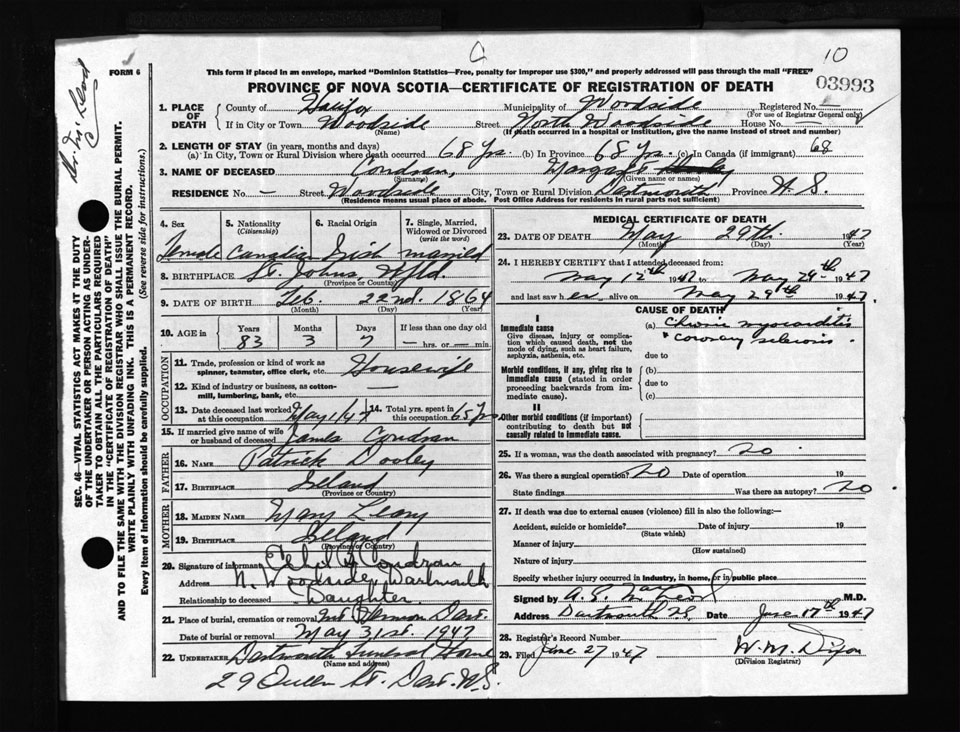 C
10
Dr. McLeod
FORM 6
This form if placed in an envelope, marked "Dominion Statistics—Free, penalty for improper use $300," and properly addressed will pass through the mail "FREE"
03993
PROVINCE OF NOVA SCOTIA—CERTIFICATE OF REGISTRATION OF DEATH
SEC. 46—VITAL STATISTICS ACT MAKES IT THE DUTY
OF THE UNDERTAKER OR PERSON ACTING AS UNDER-
TAKER TO OBTAIN ALL THE PARTICULARS REQUIRED
IN THE "CERTIFICATE OF REGISTRATION OF DEATH"
AND TO FILE THE SAME WITH THE DIVISION REGISTRAR WHO SHALL ISSUE THE BURIAL PERMIT.
WRITE PLAINLY WITH UNFADING INK. THIS IS A PERMANENT RECORD.
Every item of information should be carefully supplied. (See reverse side for instructions.)
1. PLACE OF DEATH County of Halifax Municipality of Woodside Registered No. —
(For use of Registrar General only)
If in City or Town Woodside Street North Woodside House No. —
(Name) (If death occurred in a hospital or institution, give the name instead of street and number)
2. LENGTH OF STAY (in years, months and days)
(a) In City, Town or Rural Division where death occurred 68 Yrs. (b) In Province 68 Yrs. (c) In Canada (if immigrant) 68
3. NAME OF DECEASED Condran, Margaret
(Surname) (Given name or names)
RESIDENCE No. — Street Woodside City, Town or Rural Division Dartmouth Province N.S.
(Residence means usual place of abode. Post Office Address for residents in rural parts not sufficient)
4. Sex 5. Nationality (Citizenship) 6. Racial Origin 7. Single, Married, Widowed or Divorced (write the word)
Female Canadian Irish married
8. BIRTHPLACE St. Johns, Nfld.
(Province or Country)
9. DATE OF BIRTH Feb. 22nd. 1864
(Month) (Day) (Year)
10. AGE in Years Months Days If less than one day old
83 3 7 — hrs. or — min.
OCCUPATION
11. Trade, profession or kind of work as spinner, teamster, office clerk, etc. Housewife
12. Kind of industry or business, as cotton-mill, lumbering, bank, etc. —
13. Date deceased last worked at this occupation May 1/47 14. Total yrs. spent in this occupation 65 Yrs
15. If married give name of wife or husband of deceased James Condran
FATHER
16. NAME Patrick Dooley
17. BIRTHPLACE Ireland
(Province or Country)
MOTHER
18. MAIDEN NAME Mary Leary
19. BIRTHPLACE Ireland
(Province or Country)
20. Signature of informant Ethel Condran
Address N. Woodside, Dartmouth
Relationship to deceased Daughter.
21. Place of burial, cremation or removal Mt Hermon Dart.
Date of burial or removal May 31st. 1947
22. UNDERTAKER Dartmouth Funeral Home
(Name and address)
29 Queen St. Dart. N.S.
MEDICAL CERTIFICATE OF DEATH
23. DATE OF DEATH May 29th. 1947
(Month) (Day) (Year)
24. I HEREBY CERTIFY that I attended deceased from:
May 12th 1947 to May 29th 1947
and last saw her alive on May 29th 1947.
CAUSE OF DEATH
I
Immediate cause
Give disease, injury or complication which caused death, not the mode of dying, such as heart failure, asphyxia, asthenia, etc.
(a) Chronic myocarditis
& coronary sclerosis.
due to
Morbid conditions, if any, giving rise to immediate cause (stated in order proceeding backwards from immediate cause).
(b)
due to
(c)
II
Other morbid conditions (if important) contributing to death but not causally related to immediate cause.
25. If a woman, was the death associated with pregnancy? No
26. Was there a surgical operation? No Date of operation 19
State findings Was there an autopsy? No
27. If death was due to external causes (violence) fill in also the following:—
Accident, suicide or homicide? Date of injury 19
(State which)
Manner of injury
(How sustained)
Nature of injury
Specify whether injury occurred in industry, in home, or in public place
Signed by M.D.
Address Dartmouth N.S. Date June 17th 1947
28. Registrar's Record Number
29. Filed June 27 1947 W. M. Dixon
(Division Registrar)